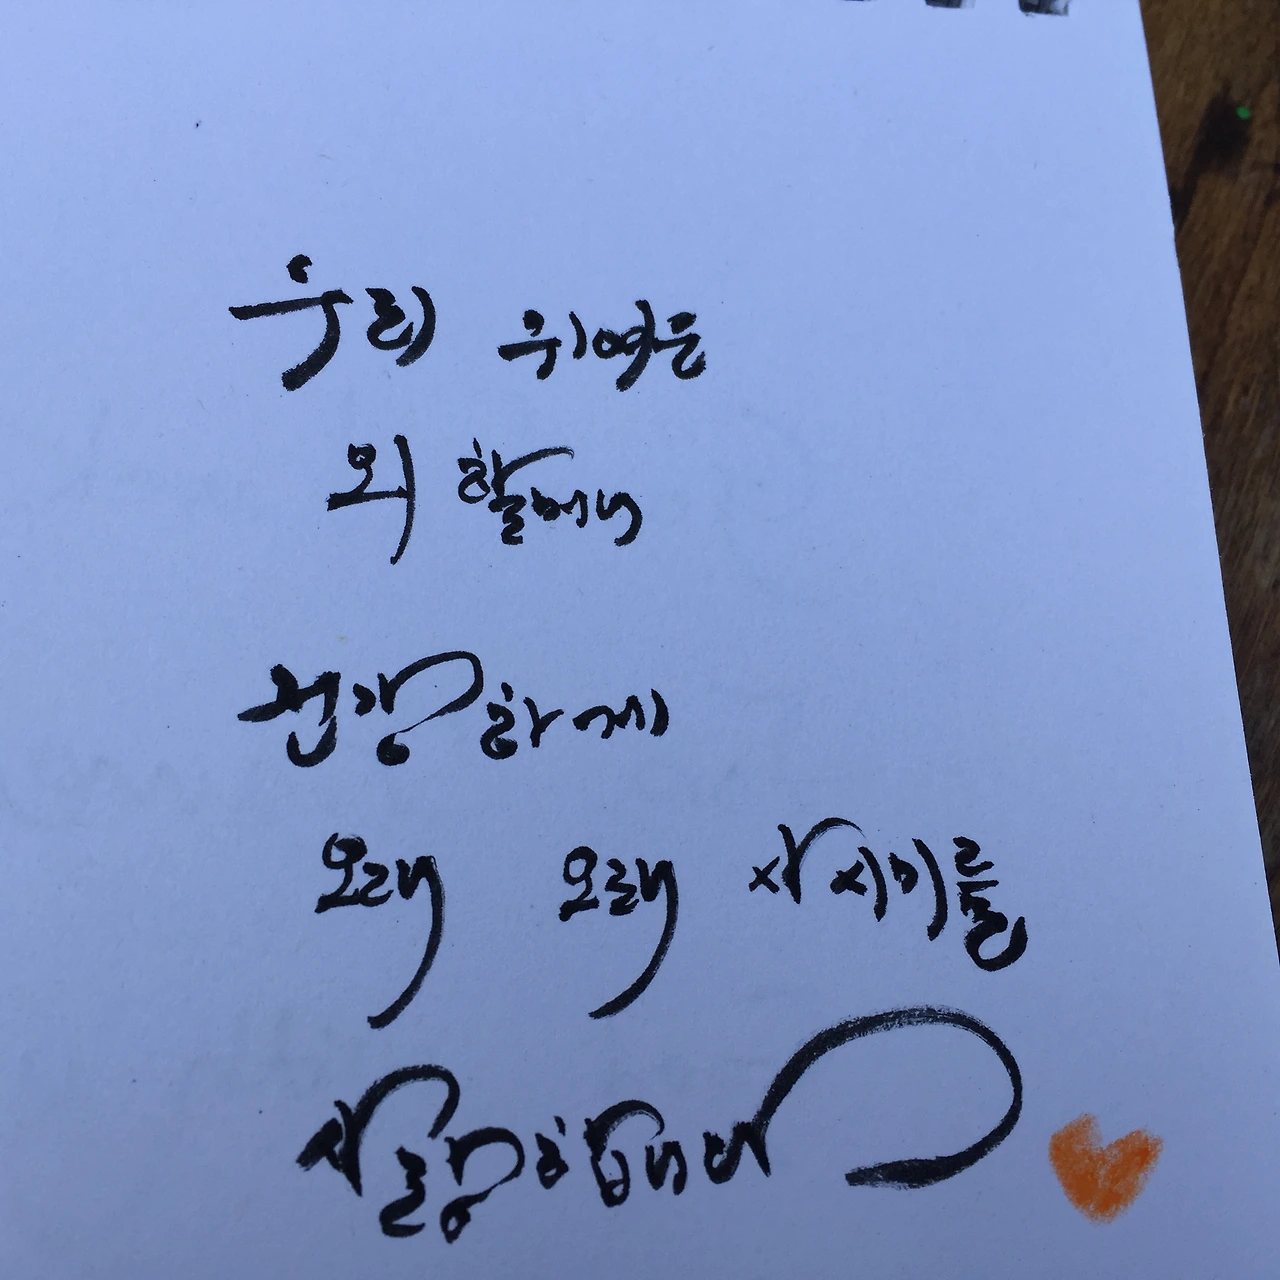 우리 귀여운
외 할머니
건강하게
오래 오래 사시기를
사랑합니다